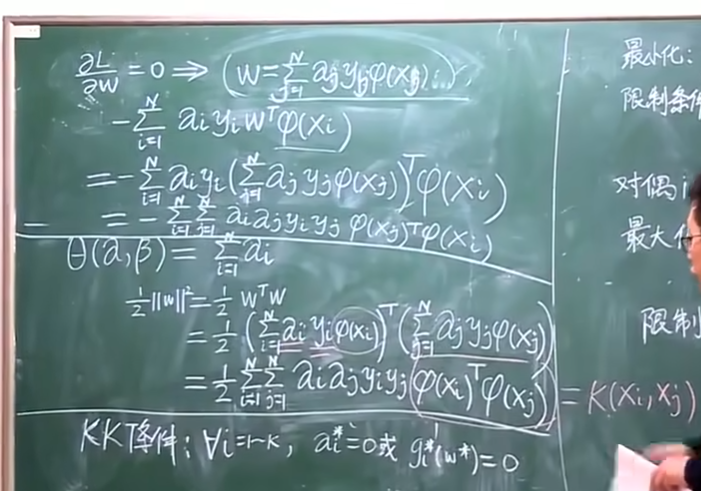 ∂L/∂W = 0 ⇒ (W = Σ_{j=1}^{N} a_j y_j φ(x_j))
-Σ_{i=1}^{N} a_i y_i W^T φ(x_i)
= -Σ_{i=1}^{N} a_i y_i (Σ_{j=1}^{N} a_j y_j φ(x_j))^T φ(x_i)
= -Σ_{i=1}^{N} Σ_{j=1}^{N} a_i a_j y_i y_j φ(x_j)^T φ(x_i)
θ(α,β) = Σ_{i=1}^{N} a_i
½||w||² = ½ W^T W
= ½ (Σ_{i=1}^{N} a_i y_i φ(x_i))^T (Σ_{j=1}^{N} a_j y_j φ(x_j))
= ½ Σ_{i=1}^{N} Σ_{j=1}^{N} a_i a_j y_i y_j φ(x_i)^T φ(x_j) = K(x_i, x_j)
KKT条件: ∀i=1~K, a_i^* = 0 或 g_i^*(w^*) = 0
最小化:
限制条件
对偶
最大化
限制